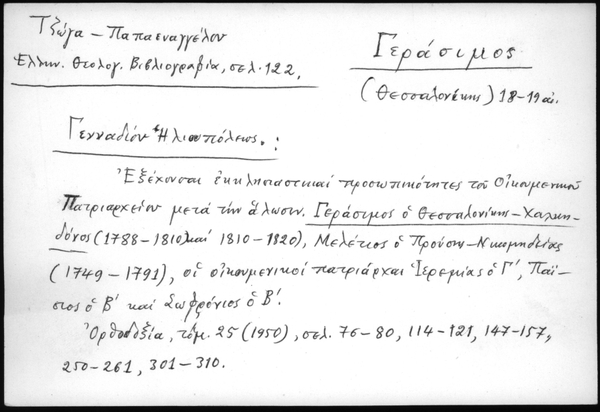 Τζώγα – Παπαευαγγέλου
Ἑλλην. Θεολογ. Βιβλιογραφία, σελ. 122.
Γεράσιμος
(Θεσσαλονίκης) 18–19 αἰ.
Γενναδίου Ἡλιουπόλεως. :
Ἐξέχουσαι ἐκκλησιαστικαί προσωπικότητες τοῦ Οἰκουμενικοῦ
Πατριαρχείου μετά τήν ἅλωσιν. Γεράσιμος ὁ Θεσσαλονίκης – Χαλκη-
δόνος (1788–1810) καί 1810–1820), Μελέτιος ὁ Προύσης – Νικομηδείας
(1749–1791), οἱ οἰκουμενικοί πατριάρχαι Ἱερεμίας ὁ Γ', Παΐ-
σιος ὁ Β' καί Σωφρόνιος ὁ Β'.
Ὀρθοδοξία, τόμ. 25 (1950), σελ. 76–80, 114–121, 147–157,
250–261, 301–310.